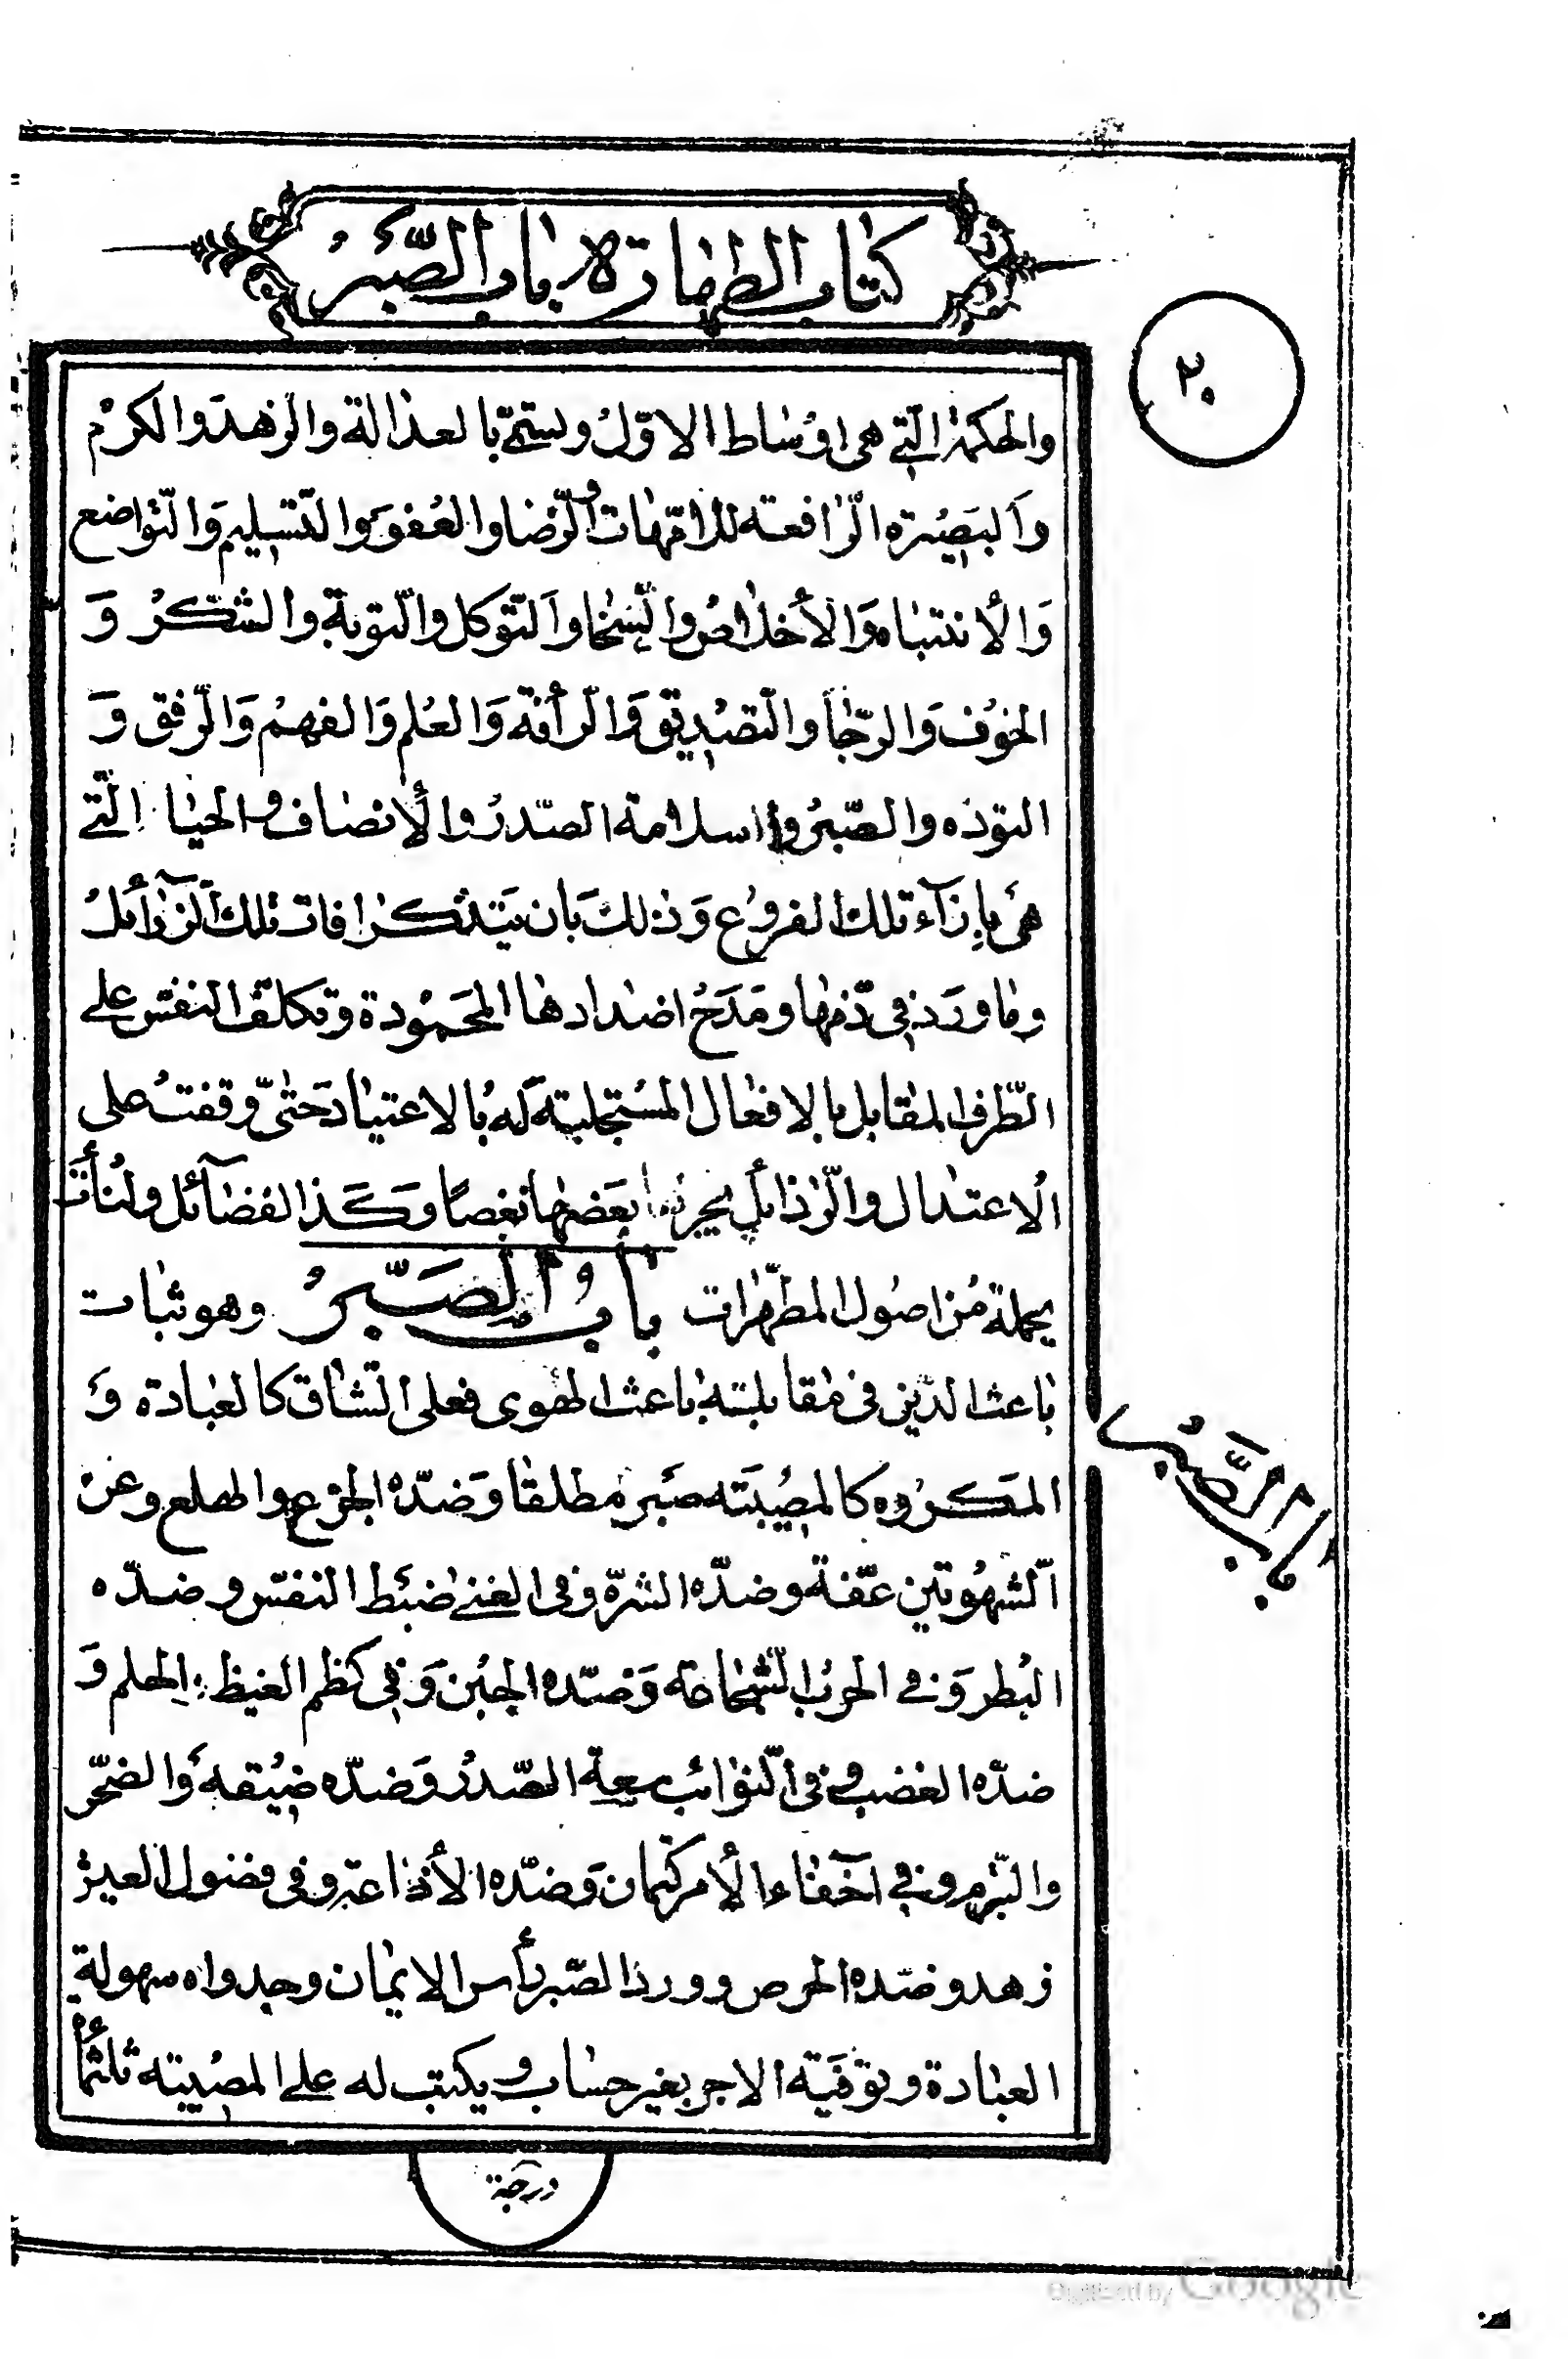 كتاب الطهارة باب الصبر
٢٠
والحكمة التي هي اوساط الاول ويستتم بالعدالة والزهد والكرم
والبصيرة الرافعة للامهات والرضا والعفو والتسليم والتواضع
والانتباه والاخلاص والسخا والتوكل والتوبة والشكر و
الخوف والرجا والتصديق والرأفة والعلم والفهم والرفق و
التوده والصبر وسلامة الصدر والانصاف والحيا التي
هي بإزآء تلك الفروع وذلك بان يتذكر افات تلك الرذائل
وما ورد في ذمها ومدح اضدادها المحمودة وتكلف النفس على
الطرف المقابل بالافعال المستجلبة له بالاعتياد حتى وقفت على
الاعتدال والرذائل يجر بعضها بعضا وكذا الفضآئل ولنأت
بجملة من اصول المطهرات باب الصبر وهو ثبات
باعث الدين في مقابلته باعث الهوى فعلى الشاق كالعبادة و
المكروه كالمصيبة صبر مطلقا وضده الجزع والهلع وعن
الشهوتين عفة وضده الشره وفي الغنى ضبط النفس وضده
البطر وفي الحرب الشجاعة وضده الجبن وفي كظم الغيظ الحلم و
ضده الغضب وفي النوائب سعة الصدر وضده ضيقه والضجر
والتبرم وفي اخفاء الامر كتمان وضده الأذاعة وفي فضول العيش
زهد وضده الحرص وورد الصبر رأس الايمان وجدواه سهولة
العبادة وتوفية الاجر بغير حساب ويكتب له على المصيبة ثلثمأة
باب الصبر
درجة
Digitized by Google